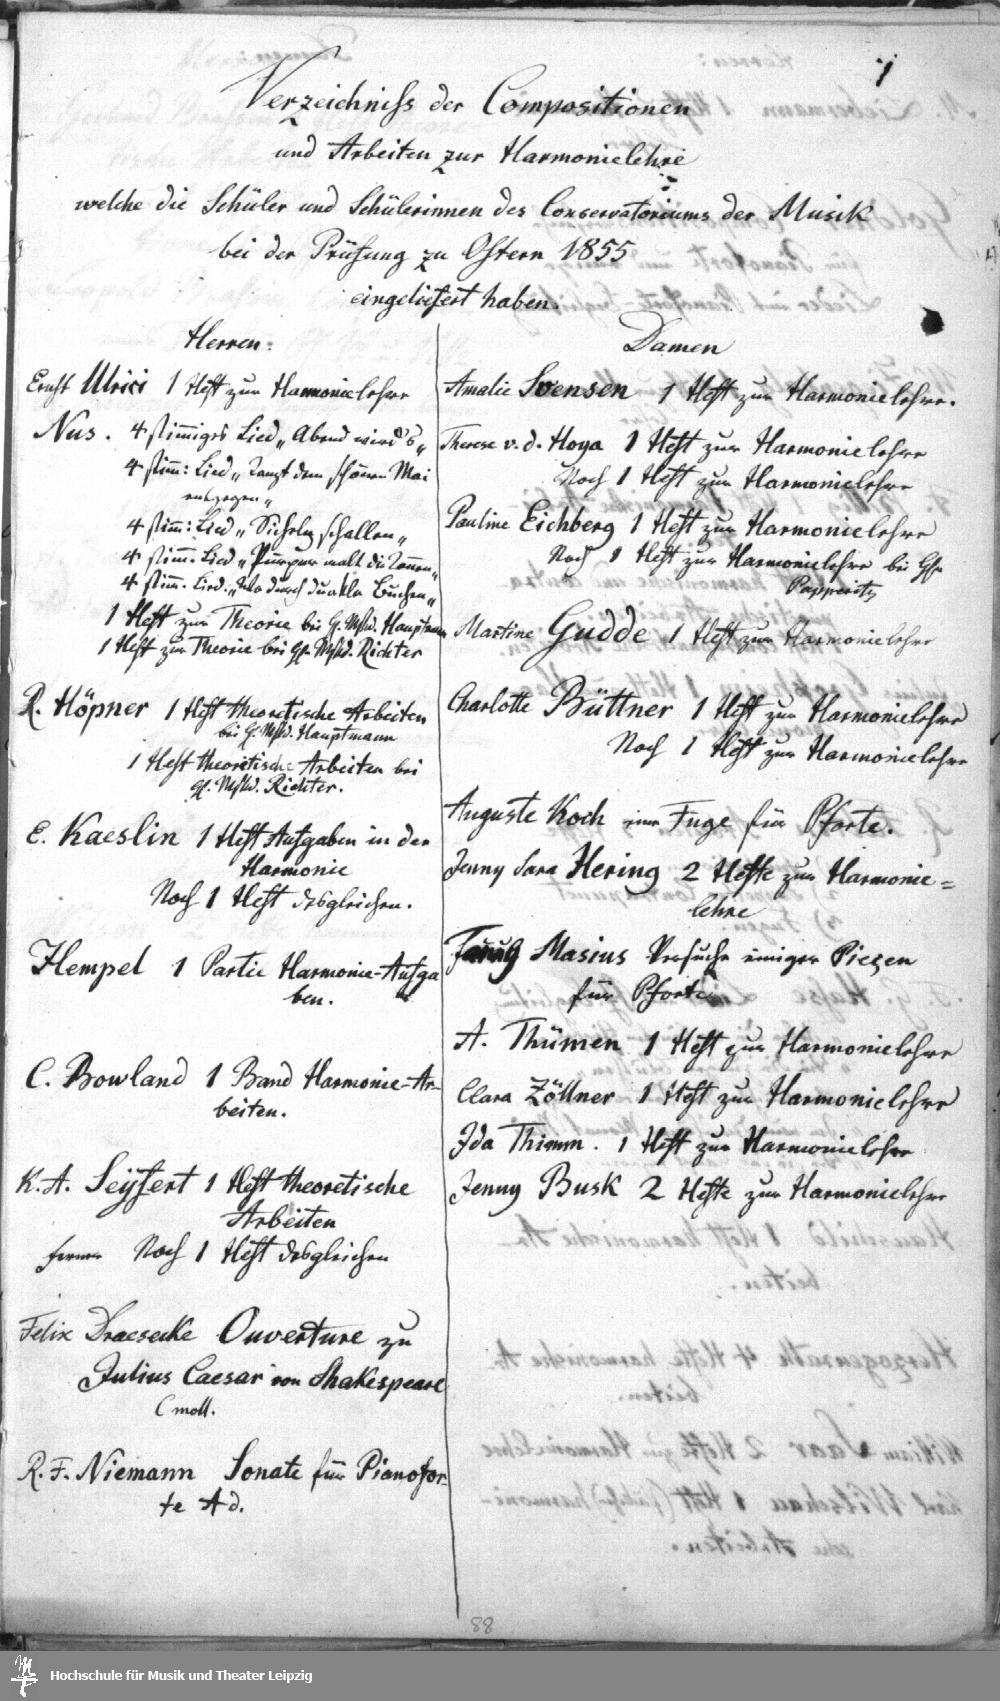 1
Verzeichniss der Compositionen
und Arbeiten zur Harmonielehre
welche die Schüler und Schülerinnen des Conservatoriums der Musik
bei der Prüfung zu Ostern 1855
eingeliefert haben.
Herren:
Ernst Ulrici 1 Heft zur Harmonielehre
Nus. 4 stimmiges Lied „Abend wird's„
4 stimm: Lied „Tanzt dem schönen Mai
entgegen„
4 stimm: Lied „Sicheln schallen„
4 stimm. Lied „Purpur malt die Tannen„
4 stimm. Lied. „Wo durch dunkle Buchen„
1 Heft zur Theorie bei H. Mskd. Hauptmann
1 Heft zur Theorie bei H. Mskd. Richter
R. Höpner 1 Heft theoretische Arbeiten
bei H. Mskd. Hauptmann
1 Heft theoretische Arbeiten bei
H. Mskd. Richter.
E. Kaeslin 1 Heft Aufgaben in der
Harmonie
Noch 1 Heft desgleichen.
Hempel 1 Partie Harmonie-Aufga
ben.
C. Bowland 1 Band Harmonie-Ar-
beiten.
K. A. Seyfert 1 Heft theoretische
Arbeiten
ferner Noch 1 Heft desgleichen
Felix Draesecke Ouverture zu
Julius Caesar von Shakespeare
C moll.
R. F. Niemann Sonate für Pianofor-
te A d.
Damen
Amalie Svensen 1 Heft zur Harmonielehre.
Therese v. d. Hoya 1 Heft zur Harmonielehre
Noch 1 Heft zur Harmonielehre
Pauline Eichberg 1 Heft zur Harmonielehre
Noch 1 Heft zur Harmonielehre bei
Papperitz
Martine Gudde 1 Heft zur Harmonielehre
Charlotte Büttner 1 Heft zur Harmonielehre
Noch 1 Heft zur Harmonielehre
Auguste Koch eine Fuge für Pforte.
Jenny Sara Hering 2 Hefte zur Harmonie=
lehre
Fanny Masius Versuche einiger Piezen
für Pforte
A. Thümen 1 Heft zur Harmonielehre
Clara Zöllner 1 Heft zur Harmonielehre
Ida Thimm. 1 Heft zur Harmonielehre
Jenny Busk 2 Hefte zur Harmonielehre
88
Hochschule für Musik und Theater Leipzig